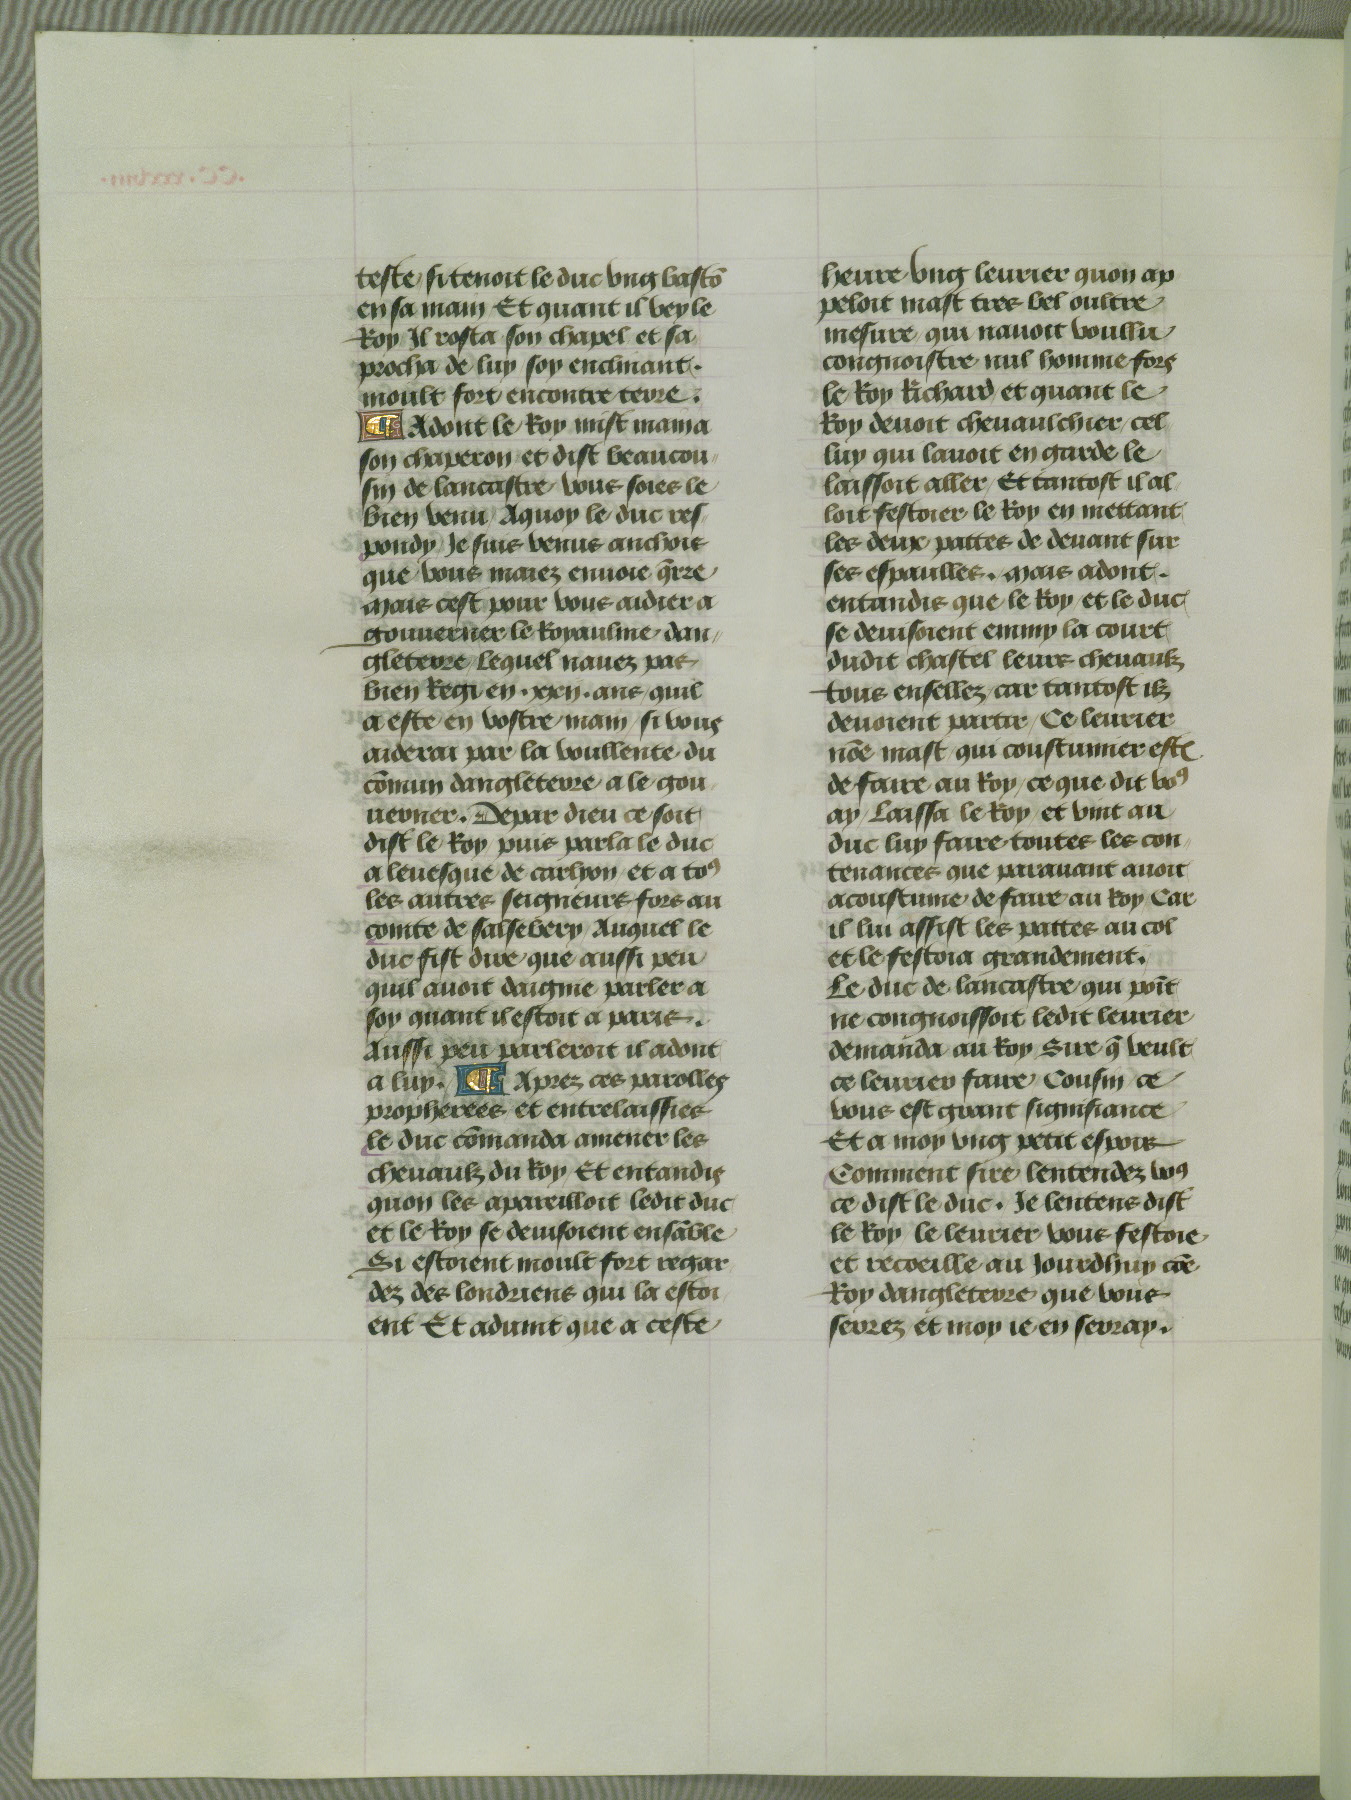 teste si tenoit le duc vng bastō
en sa main Et quant il vey le
Roy Il rosta son chapel et sa
procha de luy soy enclinant.
moult fort encontre terre.
¶ Adont le Roy mist main a
son chaperon et dist beau cou
sin de lancastre vous soies le
bien venu Aquoy le duc res
pondy Je suis venus anchois
que vous maiez enuoie q̄rre
Mais cest pour vous aidier a
gouuerner le Royaulme dan
gleterre lequel nauez pas
bien Regi en .xxij. ans quil
a este en vostre main si vous
aiderai par la voullente du
cōmun dangleterre a le gou
uerner. Depar dieu ce soit
dist le Roy puis parla le duc
a leuesque de carlyon et a toꝰ
les autres seigneurs fors au
comte de salsebery Auquel le
duc fist dire que aussi peu
quil auoit daigme parler a
soy quant il estoit a paris.
Aussi peu parleroit il adont
a luy. ¶ Aprez ces parolles
propherees et entrelaissies
le duc cōmanda amener les
cheuaulz du Roy Et entandis
quon les apareilloit ledit duc
et le Roy se deuisoient ensāble
Si estoient moult fort regar
dez des londriens qui la estoi
ent Et aduint que a ceste
heure vng leurier quon ap
peloit mast tres bel oultre
mesure qui nauoit voullu
congnoistre nul homme fors
le Roy Richard et quant le
Roy deuoit cheuaulchier cel
luy qui lauoit en garde le
laissoit aller Et tantost il al
loit festoier le Roy en mettant
les deux pattes de deuant sur
ses espaulles. Mais adont.
entandis que le Roy et le duc
se deuisoient emmy la court
dudit chastel leurs cheuaulz
tous ensellez car tantost ilz
deuoient partir Ce leurier
nōe mast qui coustumier este
de faire au Roy ce que dit voꝰ
ay Laissa le Roy et vint au
duc luy faire toutes les con
tenances que parauant auoit
acoustume de faire au Roy Car
il lui assist les pattes au col
et le festoia grandement.
Le duc de lancastre qui poīt
ne congnoissoit ledit leurier
demanda au Roy Sire q̄ veult
ce leurier faire Cousin ce
vous est grant signifiance
Et a moy vng petit espoir
Comment sire lentendez voꝰ
ce dist le duc. Je lentens dist
le Roy le leurier vous festoie
et recoeille au Jourdhuy cōe
Roy dangleterre que vous
serrez et moy ie en serray.